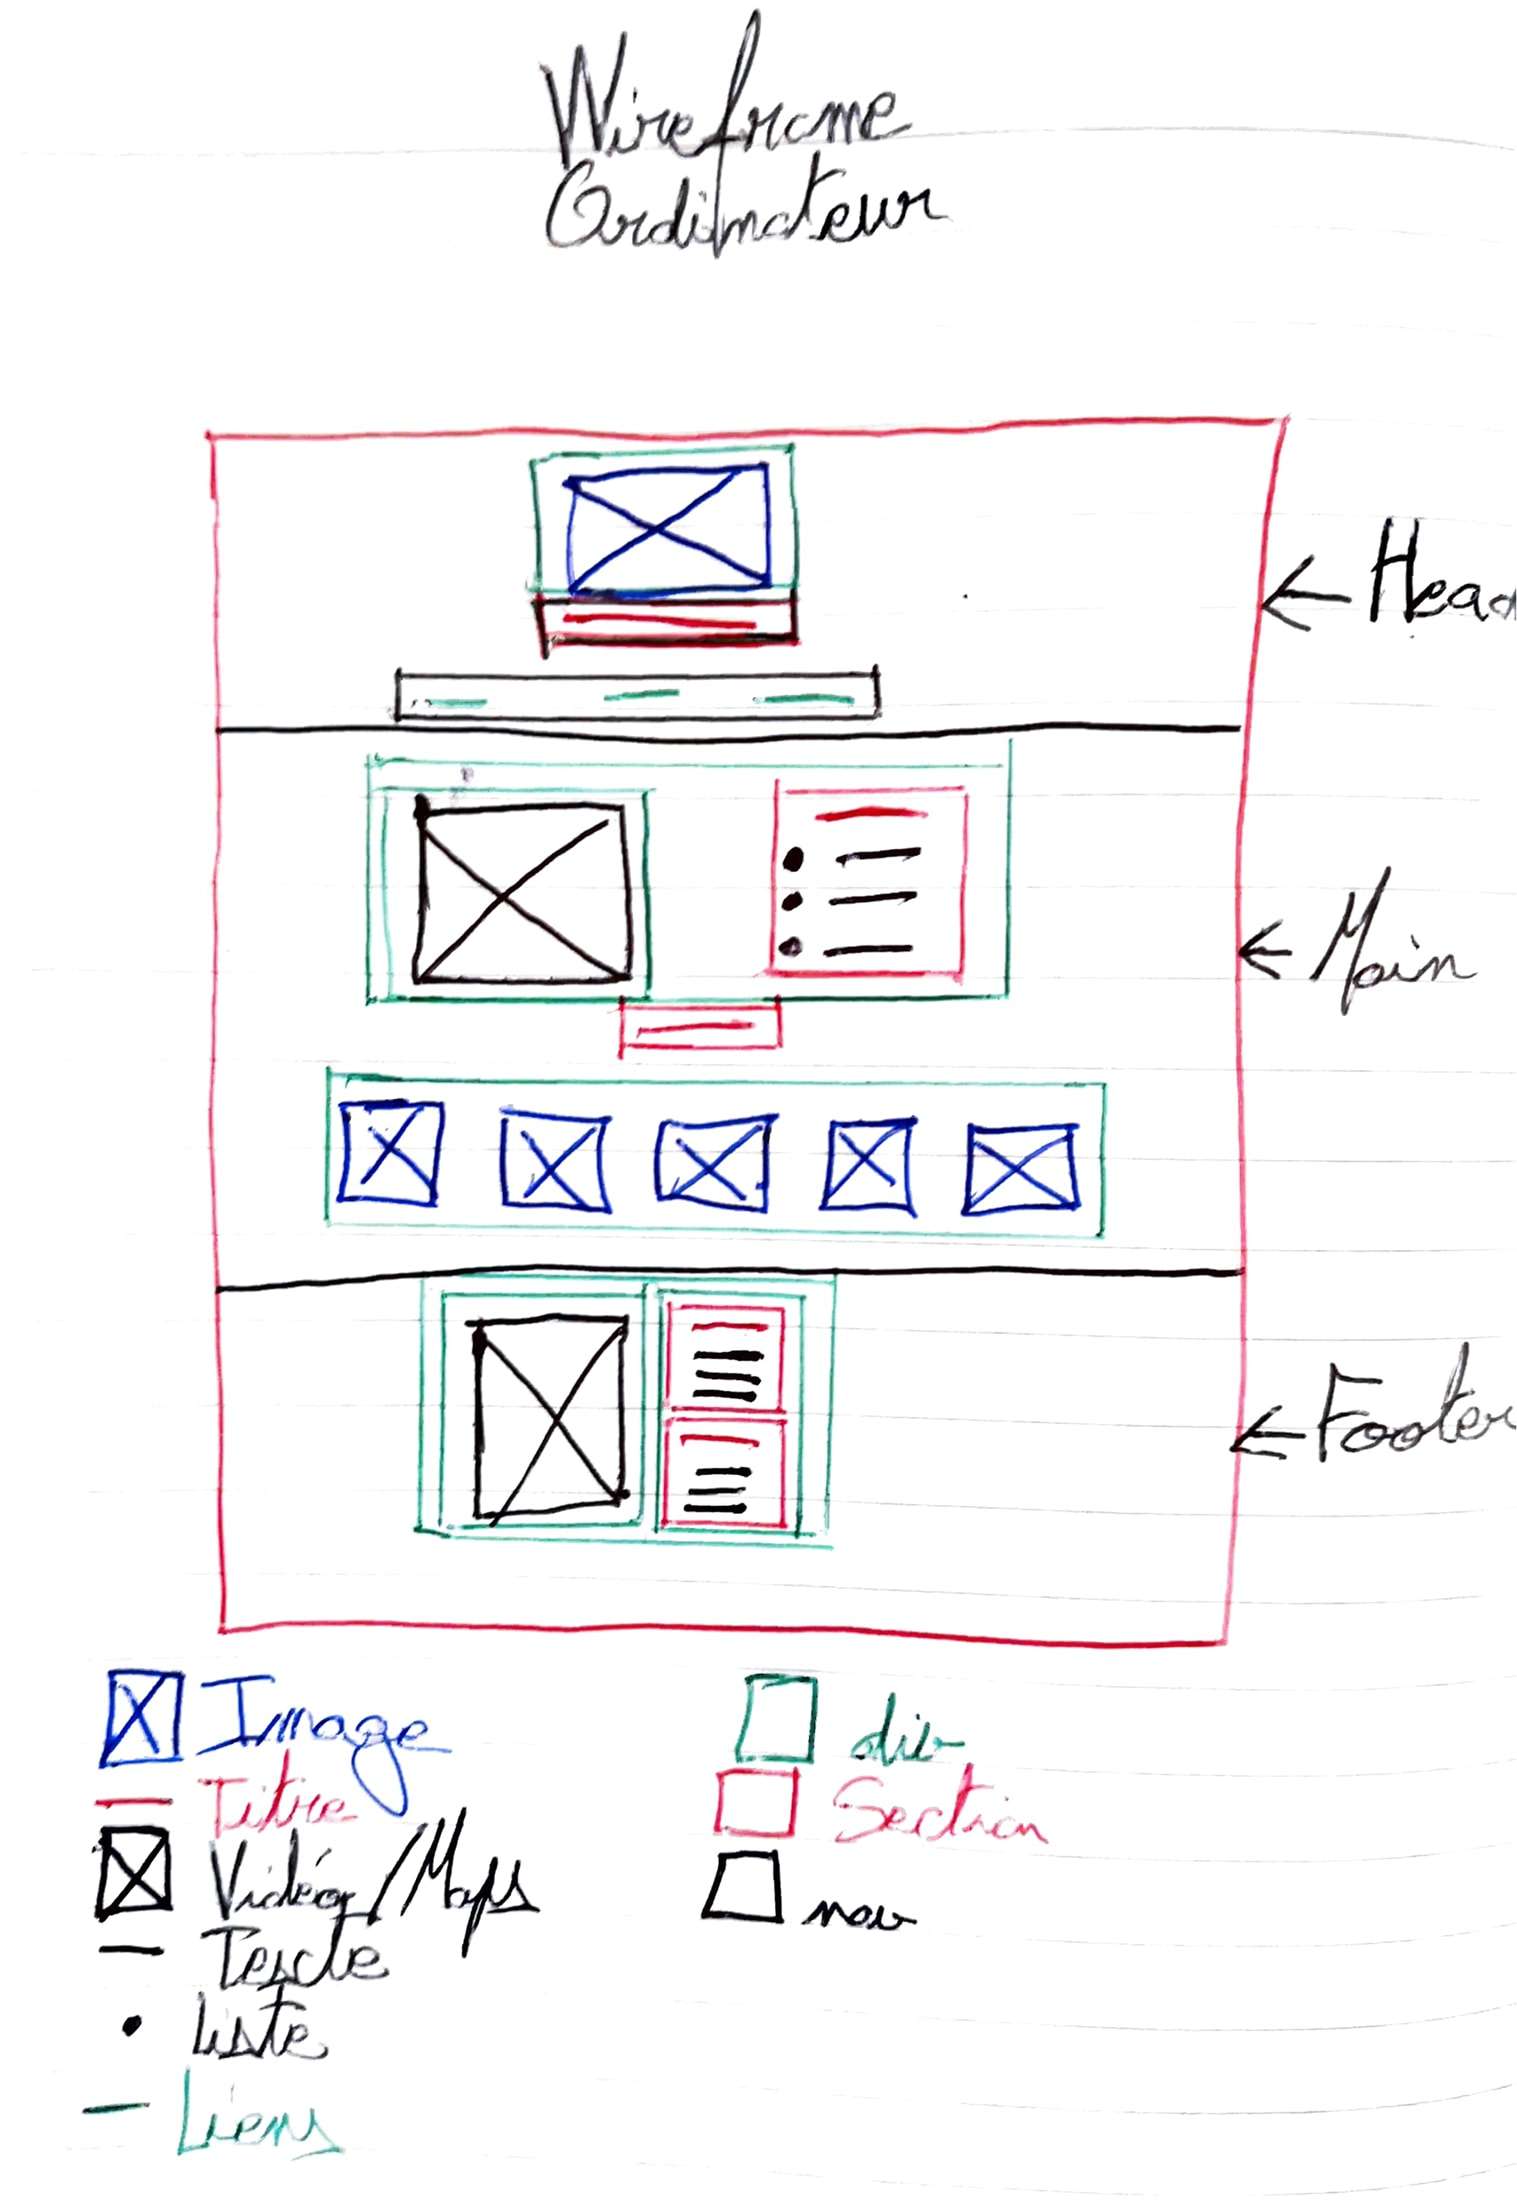 Wireframe
Ordinateur
← Head
← Main
← Footer
Image
Titre
Vidéo/Maps
Texte
Liste
Liens
div
Section
nav